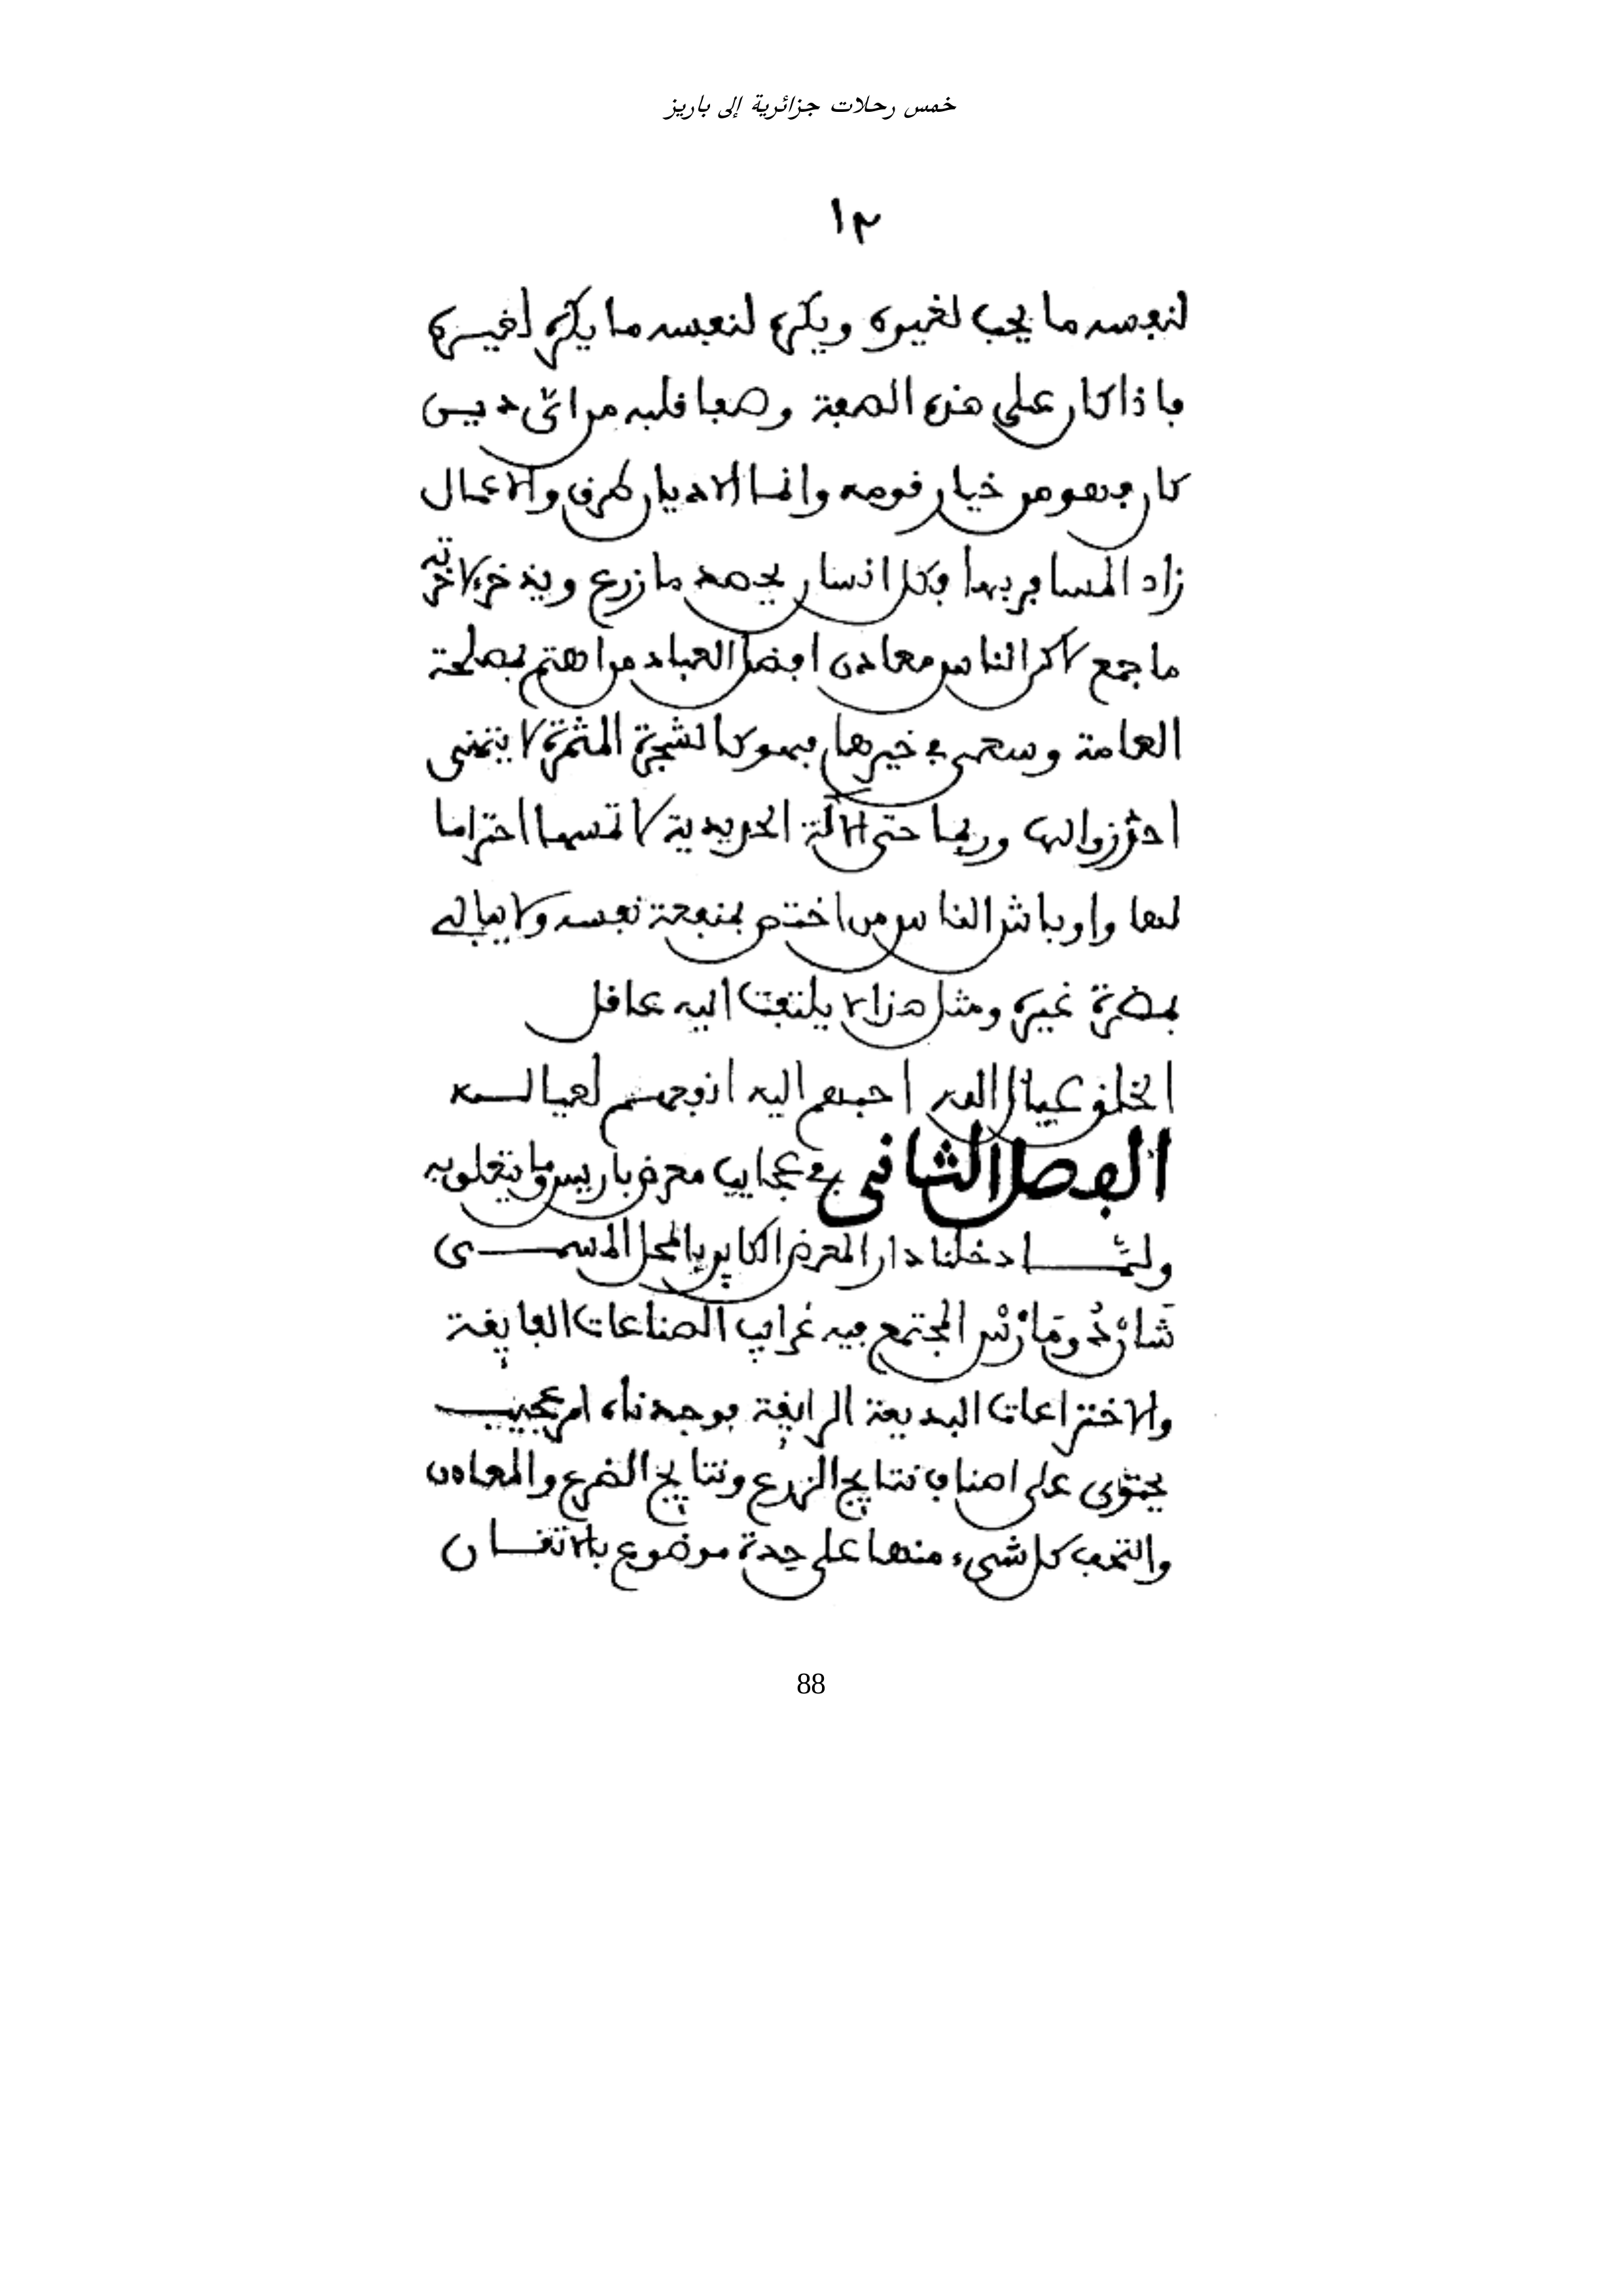 خمس رحلات جزائرية إلى باريز
١٢
لنفسه ما يحب لغيره ويكره لنفسه ما يكره لغيره
فاذا كان على هذه الصفة وصفا قلبه من اي دين
كان فهو من خيار قومه وانما الاديان طرق والاعمال
زاد المسافر بها فكل انسان يحصد ما زرع ويذخر لاخرته
ما جمع لاكن الناس معادن افضل العباد من اهتم بمصلحة
العامة وسعى في خيرها فهو كالشجرة المثمرة لا يتمنى
احد زوالها وربما حتى الآلة الحديدية لا تمسها احتراما
لها وان اشر الناس من اختص بمنفعة نفسه ولا يبالي
بمضرة غيره ومثل هذا لا يلتفت اليه عاقل
الخلق عيال الله احبهم اليه انفعهم لعياله
الفصل الثاني في عجايب معرض باريس وما يتعلق به
ولما دخلنا دار المعرض الكاين بالمحل المسمى
شَانْ دُو مَارْس المجتمع فيه غرايب الصناعات الفايقة
والاختراعات البديعة الرايقة فوجدناه امر عجيب
يحتوي على اصناف نتايج الزرع ونتايج الضرع والمعادن
والتحف كل شيء منها على حدة موضوع بالاتقان
88